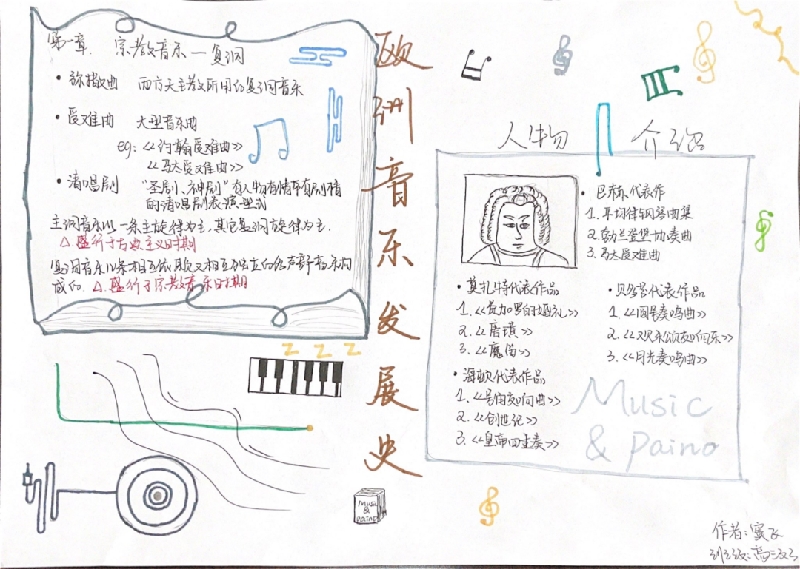 第一章. 宗教音乐—复调
• 弥撒曲 西方天主教所用的复调音乐
• 受难曲 大型音乐曲
eg: 《约翰受难曲》
《马太受难曲》
• 清唱剧 "圣剧、神剧"有人物有情节有剧情
的清唱剧表演型式
主调音乐以一条主旋律为主,其它复调旋律为主.
△ 盛行于古典主义时期
成的. △ 盛行于宗教音乐时期
欧洲音乐发展史
人物 介绍
• 巴赫代表作
1. 平均律钢琴曲集
2. 勃兰登堡协奏曲
3. 马太受难曲
• 莫扎特代表作品
1. 《费加罗的婚礼》
2. 《唐璜》
3. 《魔笛》
• 贝多芬代表作品
1. 《悲奏鸣曲》
2. 《欢乐颂交响乐》
3. 《月光奏鸣曲》
• 海顿代表作品
1. 《告别交响曲》
2. 《创世纪》
3. 《皇帝四重奏》
Music
& Paino
z z z
MUSIC
&
PAINO
作者:
班级:高二